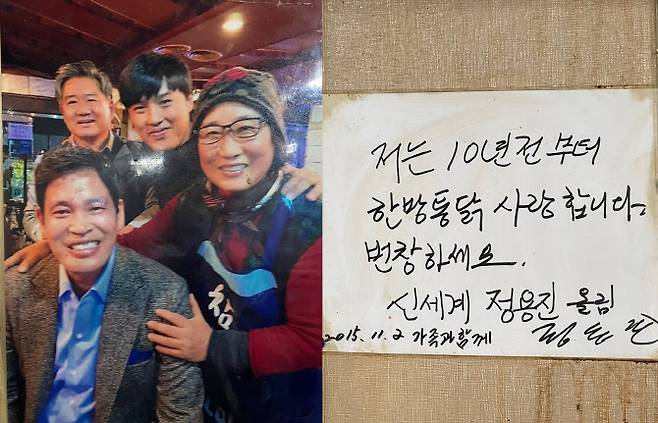 참
저는 10년전 부터
한방통닭 사랑합니다~
번창하세요.
신세계 정용진 올림
2015.11.2 가족과함께